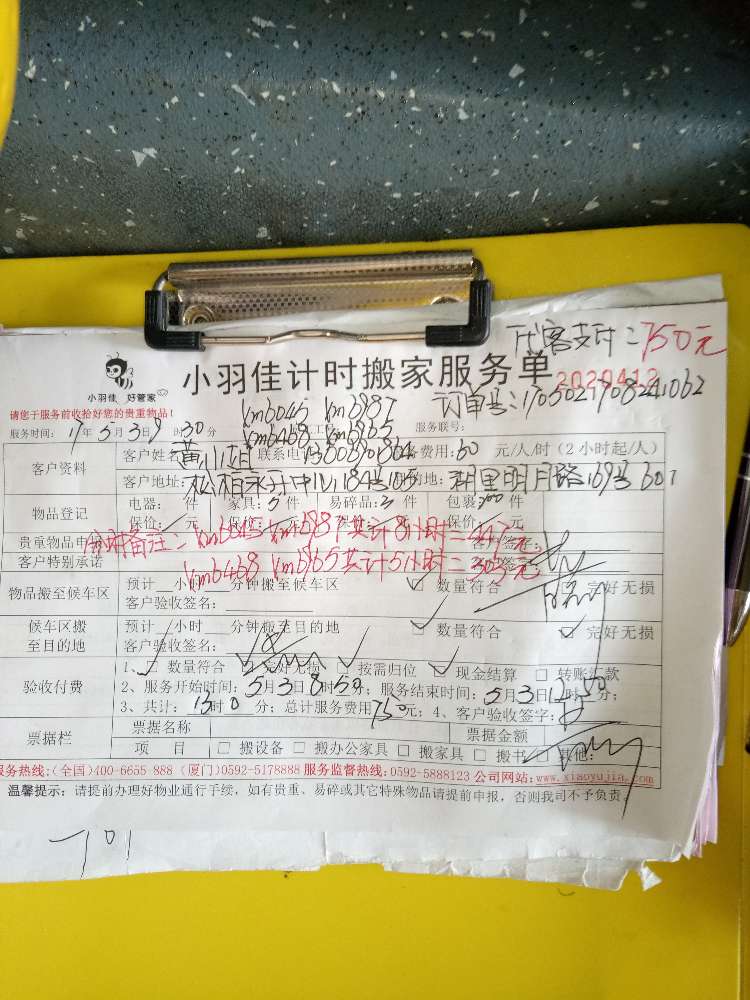 代客支付:750元
小羽佳 好管家
小羽佳计时搬家服务单
2020412
请您于服务前收拾好您的贵重物品!
km6045 km6987
订单号:1705021908241062
服务时间:17年5月3日 时30分
工号:
km6468 km6965
服务联号:
客户资料
客户姓名 黄小姐 联系电话
服务费用:60 元/人/时(2小时起/人)
客户地址: 184号105
目的地:湖里明月路169号601
物品登记
电器: 件 家具:5件 易碎品: 件 包裹: 件
保价: 元 保价: 元 保价: 元
贵重物品申
小时备注:km6045 km6987共计8小时=447元
客户特别承诺
km6468 km6965共计5小时=303元
物品搬至候车区
预计__小时__分钟搬至候车区 □ 数量符合 □ 完好无损
客户验收签名:
候车区搬至目的地
预计__小时__分钟搬至目的地 □ 数量符合 □ 完好无损
客户验收签名:
验收付费
1、□ 数量符合 □ 完好无损 □ 按需归位 □ 现金结算 □ 转账汇款
2、服务开始时间:5月3日8时50分;服务结束时间:5月3日12时50分;
3、共计:13时0分;总计服务费用750元;4、客户验收签字:
票据栏
票据名称 票据金额
项 目 □ 搬设备 □ 搬办公家具 □ 搬家具 □ 搬书 □ 其他:
服务热线:(全国)400-6655 888 (厦门)0592-5178888 服务监督热线:0592-5888123 公司网站:www.xiaoyujia.com
温馨提示:请提前办理好物业通行手续,如有贵重、易碎或其它特殊物品请提前申报,否则我司不予负责。